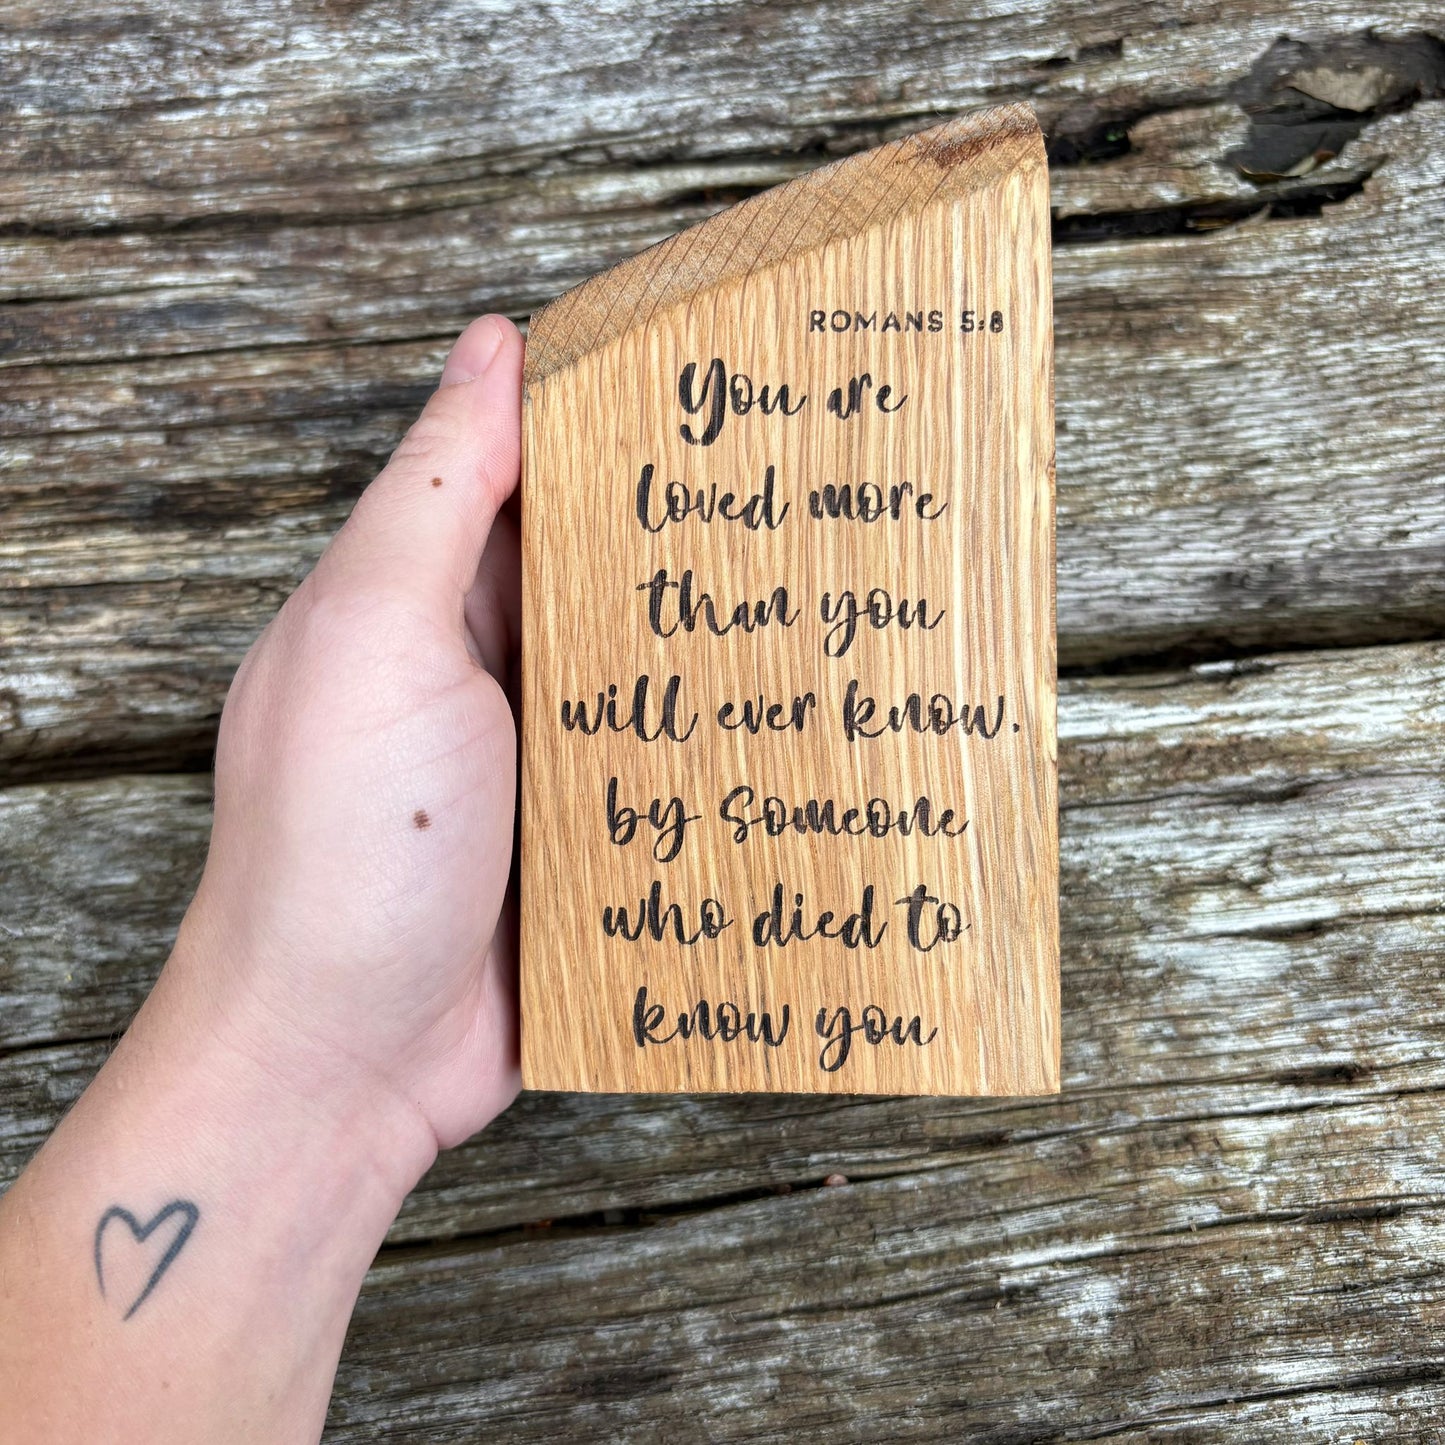 ROMANS 5:8
You are
loved more
than you
will ever know.
by someone
who died to
know you